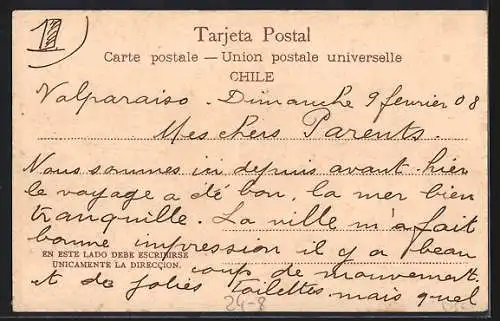 11
Tarjeta Postal
Carte postale — Union postale universelle
CHILE
Valparaiso. Dimanche 9 fevrier 08
Mes chers Parents.
Nous sommes ici depuis avant-hier
le voyage a été bon, la mer bien
tranquille. La ville m'a fait
bonne impression il y a beau
EN ESTE LADO DEBE ESCRIBIRSE
UNICAMENTE LA DIRECCION.
coup de mouvement,
et de jolies toilettes mais quel
24-8